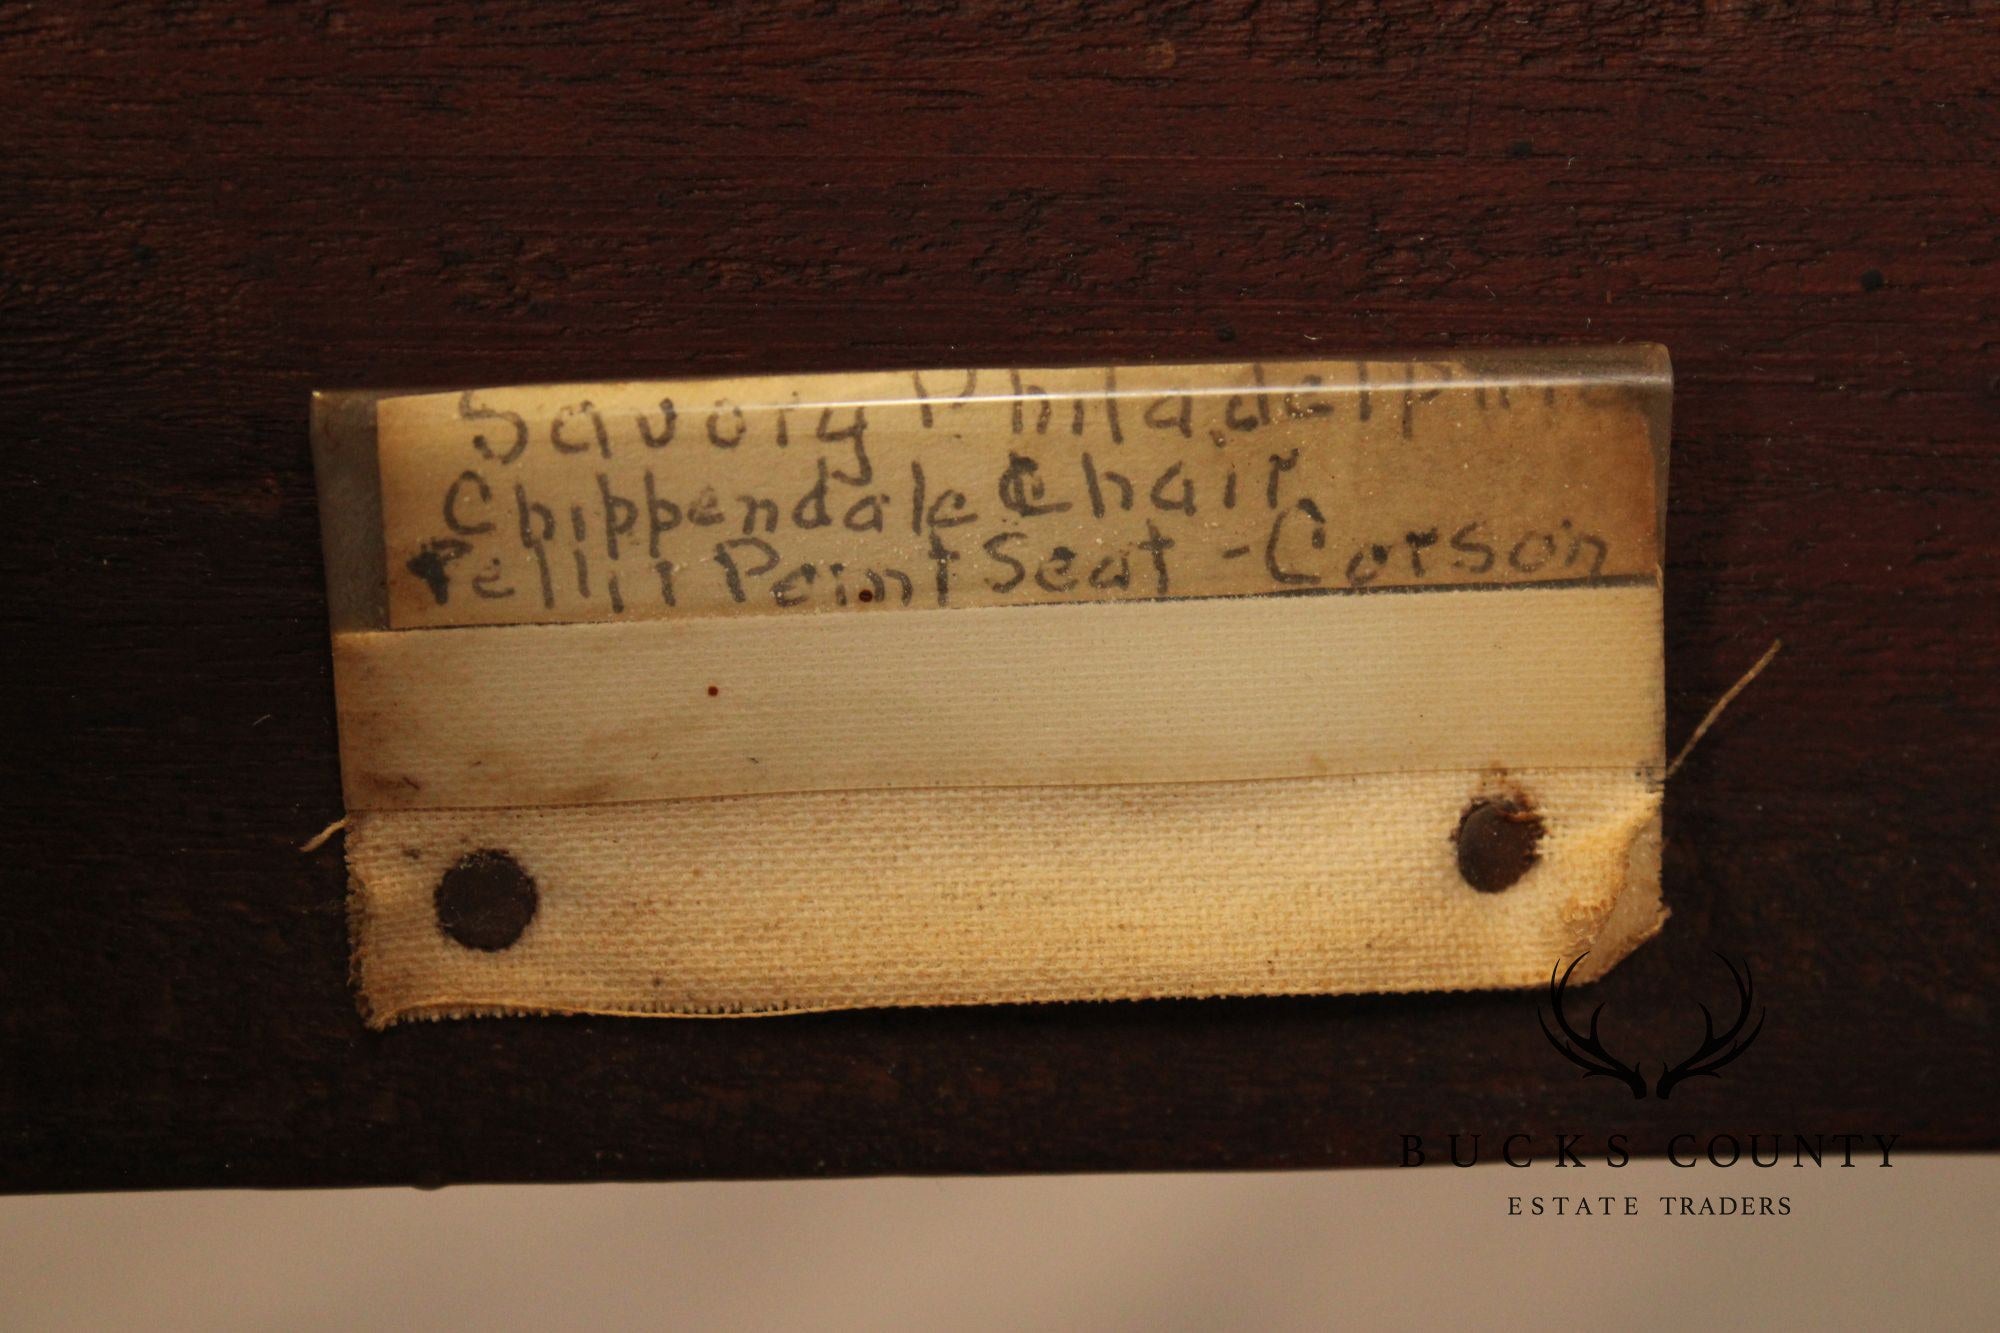 Savory Philadelphia
Chippendale Chair,
Pellit Point Seat - Corson
BUCKS COUNTY
ESTATE TRADERS